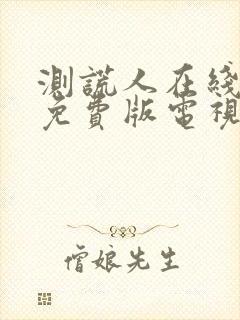 測謊人在綫
免費版電視
僧娘先生